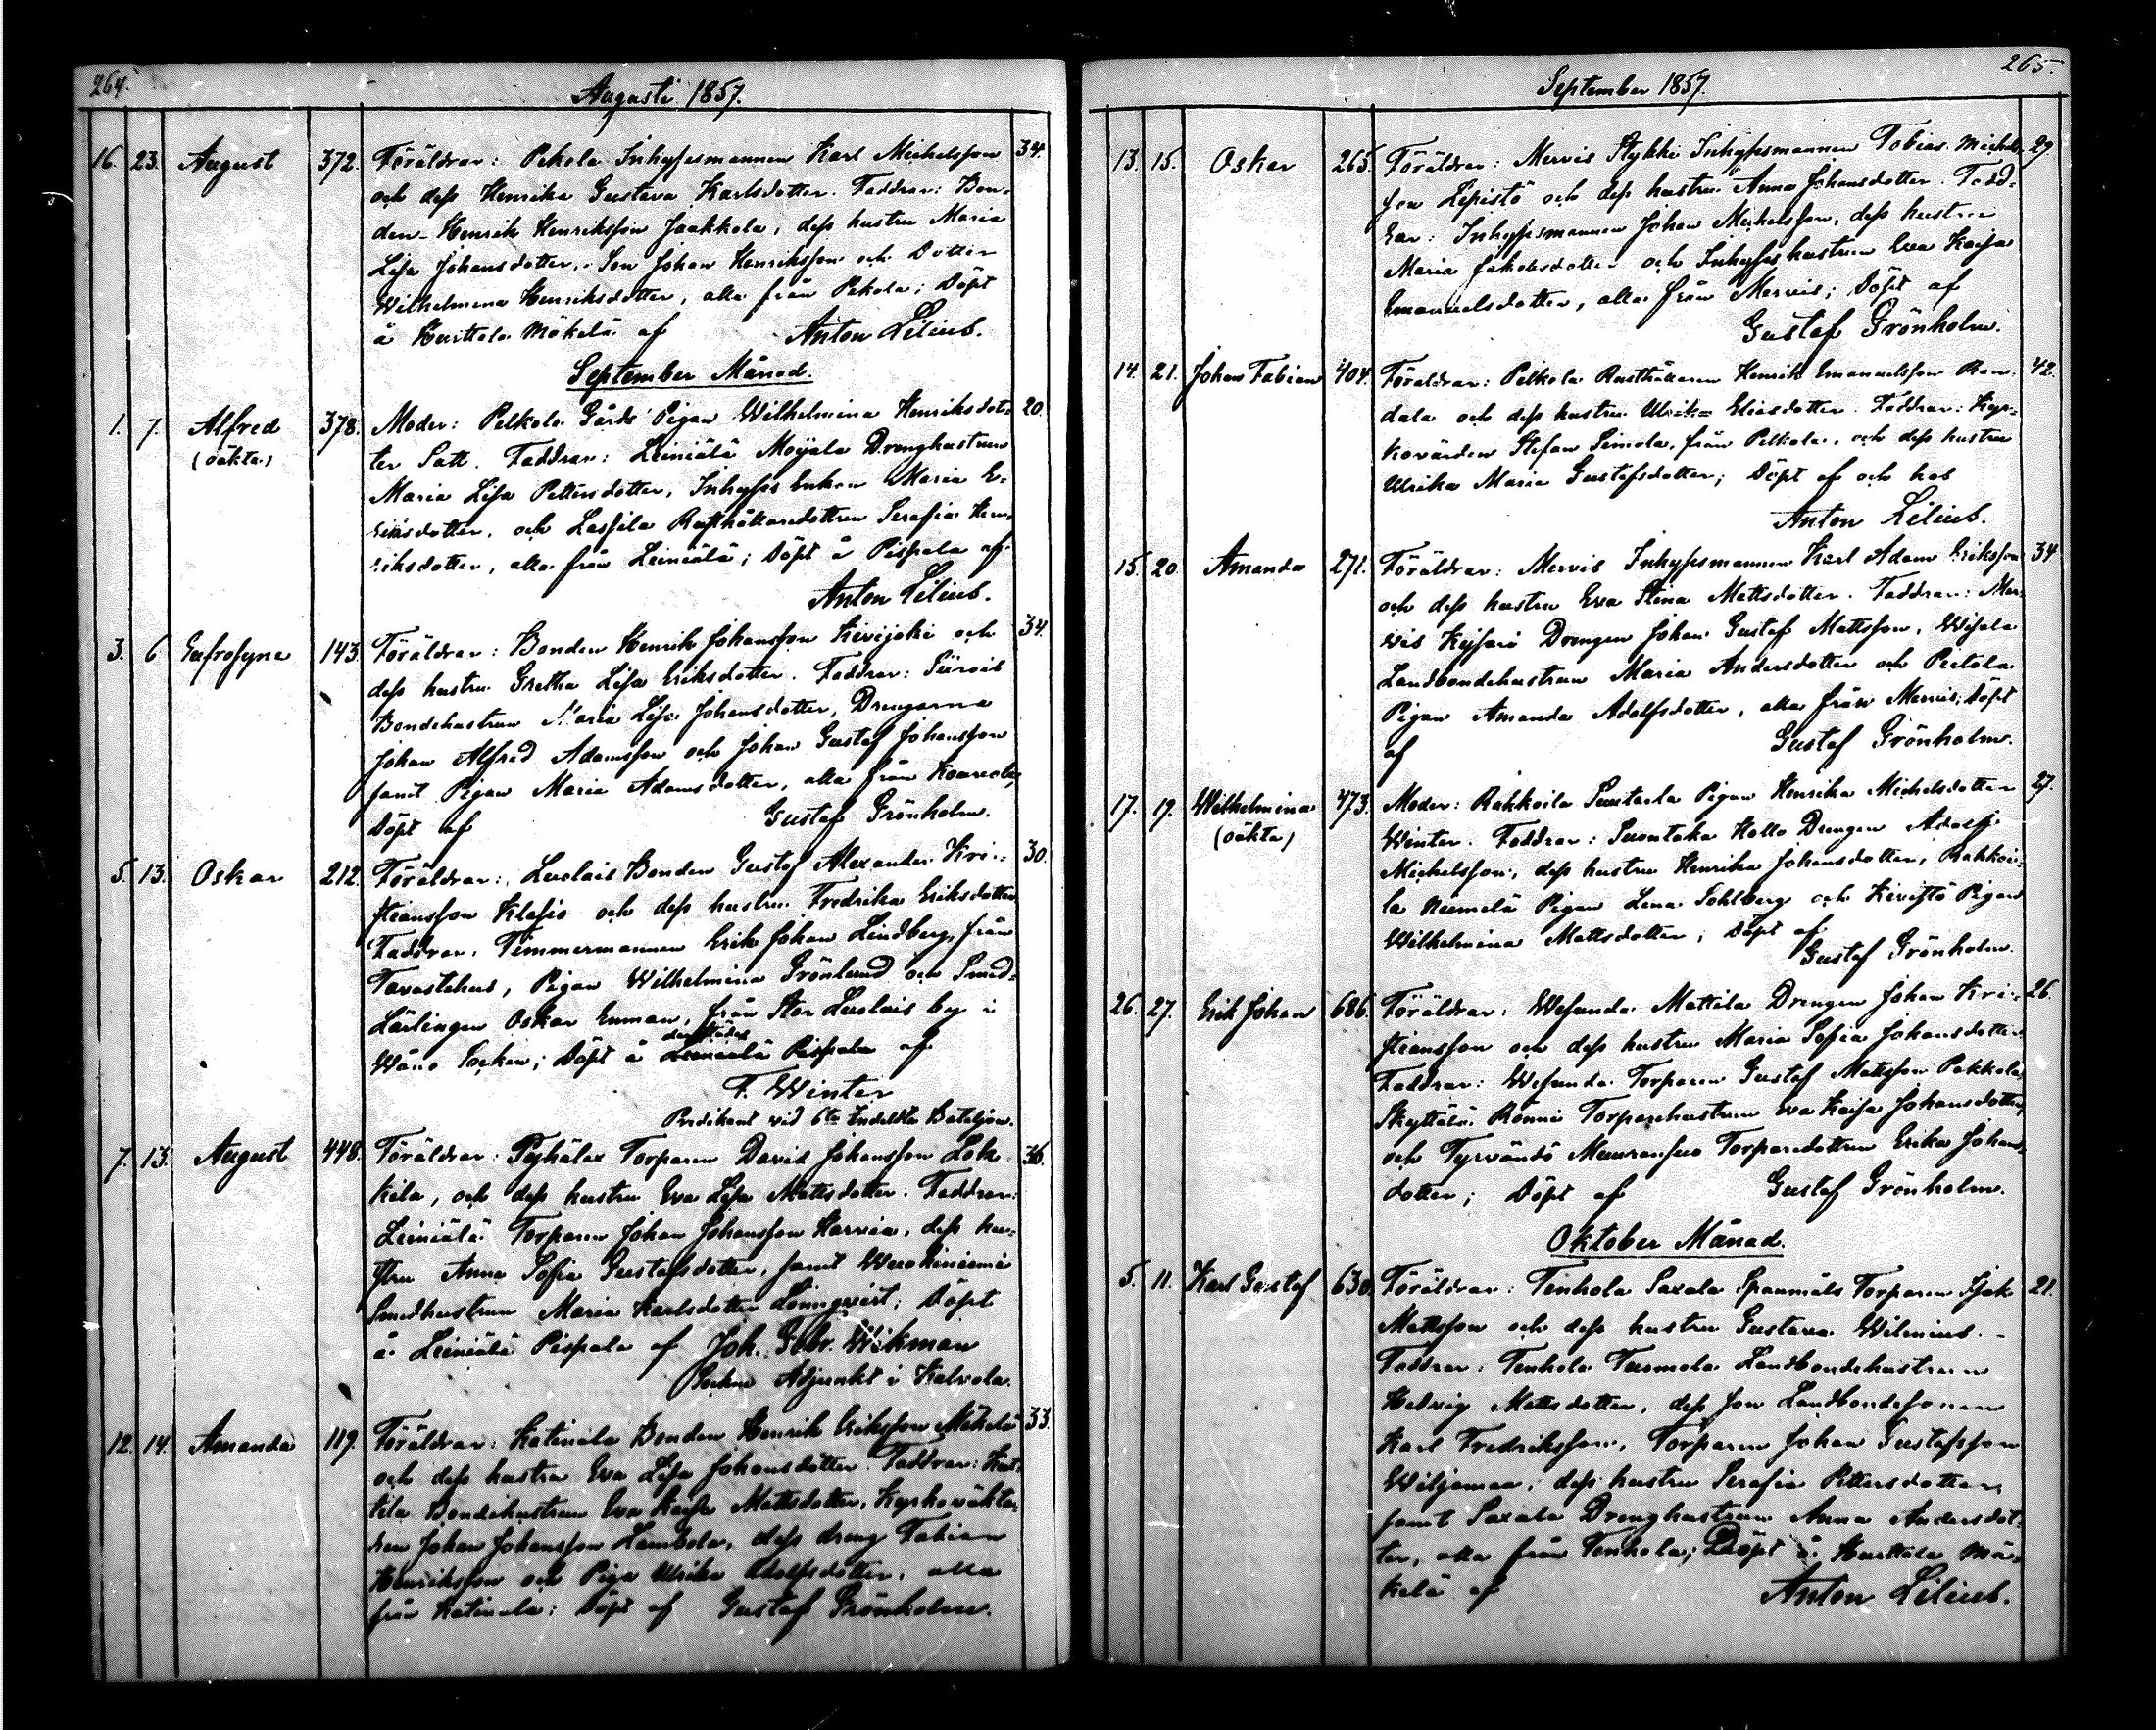 264.
Augusti 1857.
16. 23. August 372. Föräldrar: Pekola Inhysesmannen Karl Michelsson 34.
och dess Henrika Gustava Karlsdotter. Faddrar: Bon-
den Henrik Henriksson Jaakkola, dess hustru Maria
Lisa Johansdotter, Son Johan Henriksson och Dotter
Wilhelmina Henriksdotter, alla från Pekola; Döpt
å Hurttala Mäkelä af Anton Lilius.
September Månad.
1. 7. Alfred 378. Moder: Pelkola Gårds Pigan Wilhelmina Henriksdot- 20.
(oäkta) ter Satt. Faddrar: Leiniälä Moijala Drenghustrun
Maria Lisa Pettersdotter, Inhyses Enkan Maria E-
riksdotter, och Lassila Rusthållaredottren Serafia Hen-
riksdotter, alla från Leiniälä; Döpt å Pispala af
Anton Lilius.
3. 6 Eufrosyne 143. Föräldrar: Bonden Henrik Johansson Kivijoki och 34.
dess hustru Gretha Lisa Eriksdotter. Faddrar: Siirois
Bondehustrun Maria Lisa Johansdotter, Drengarna
Johan Alfred Adamsson och Johan Gustaf Johansson
samt Pigan Maria Adamsdotter, alla från
Döpt af Gustaf Grönholm.
5. 13. Oskar 212. Föräldrar: Luolais Bonden Gustaf Alexander Kri- 30.
stiansson Klasio och dess hustru Fredrika Eriksdotter
Faddrar. Timmermannen Erik Johan Lindberg, från
Tavastehus, Pigan Wilhelmina Grönlund och Smed-
Lärlingen Oskar Enman, från Stor Luolais by i
Wånå Socken; Döpt å Leiniälä Pispala af
F. Winter
Predikant vid 6te Indeldta Bataljon.
7. 13. August 448. Föräldrar: Torparen David Johansson Lok- 36.
kila, och dess hustru Eva Lisa Mattsdotter. Faddrar:
Leiniälä Torparen Johan Johansson Harvia, dess hu-
stru Anna Sofia Gustafsdotter, samt Wuohiniemi
Smedhustrun Maria Karlsdotter Lönnqvist; Döpt
å Leiniälä Pispala af Joh. Gabr. Wikman
Sockne Adjunkt i Kalvola.
12. 14. Amanda 119. Föräldrar: Katinala Bonden Henrik Eriksson Mäkelä 33.
och dess hustru Eva Lisa Johansdotter. Faddrar: Kut-
tila Bondehustrun Eva Kaisa Mattsdotter, Kyrkoväkta-
ren Johan Johansson Lambola, dess dreng Fabian
Henriksson och Piga Ulrika Adolfsdotter, alla
från Katinala; Döpt af Gustaf Grönholm.
265.
September 1857.
13. 15. Oskar 265. Föräldrar: Mervis Stykki Inhysesmannen Tobias Michels- 29.
son Lepistö och dess hustru Anna Johansdotter. Fadd-
rar: Inhysesmannen Johan Michelsson, dess hustru
Maria Jakobsdotter och Inhyseshustrun Eva Kaisa
Emanuelsdotter, alla från Mervis; Döpt af
Gustaf Grönholm.
14. 21. Johan Fabian 404. Föräldrar: Pelkola Rusthållaren Henrik Emanuelsson Ran- 42.
dala och dess hustru Ulrika Eliasdotter. Faddrar: Kyr-
kovärden Stefan Simola, från Pelkola, och dess hustru
Ulrika Maria Gustafsdotter; Döpt af och hos
Anton Lilius.
15. 20. Amanda 271. Föräldrar: Mervis Inhysesmannen Karl Adam Eriksson 34
och dess hustru Eva Stina Mattsdotter. Faddrar: Mer-
vis Drengen Johan Gustaf Mattsson,
Landbondehustrun Maria Andersdotter och Pietola
Pigan Amanda Adolfsdotter, alla från Mervis; Döpt
af Gustaf Grönholm.
17. 19. Wilhelmina 473. Moder: Rahkoila Pigan Henrika Michelsdotter 27.
(oäkta) Winter. Faddrar: Suontaka Kello Drengen Adolf
Michelsson, dess hustru Henrika Johansdotter, Rahkoi-
la Pigan Lena Sohlberg och Kivistö Pigan
Wilhelmina Mattsdotter; Döpt af
Gustaf Grönholm.
26. 27. Erik Johan 686. Föräldrar: Wesunda Mattila Drengen Johan Kri- 26.
stiansson och dess hustru Maria Sofia Johansdotter
Faddrar: Wesunda Torparen Gustaf Mattsson Pakkola,
Skyttälä Torparehustrun Eva Kaisa Johansdotter,
och Tyrvändö Torparedottren Erika Johans-
dotter; Döpt af Gustaf Grönholm.
Oktober Månad.
5. 11. Karl Gustaf 630. Föräldrar: Tenhola Saxala Spannmåls Torparen Isak 21.
Mattsson och dess hustru Gustava Wilenius.
Faddrar: Tenhola Tuomola Landbondehustrun
Hedvig Mattsdotter, dess son Landbondesonen
Karl Fredriksson, Torparen Johan Gustafsson
Wiljamaa, dess hustru Serafia Pettersdotter,
samt Saxala Drenghustrun Anna Andersdot-
ter, alla från Tenhola; Döpt å Hurttala Mä-
kelä af Anton Lilius.